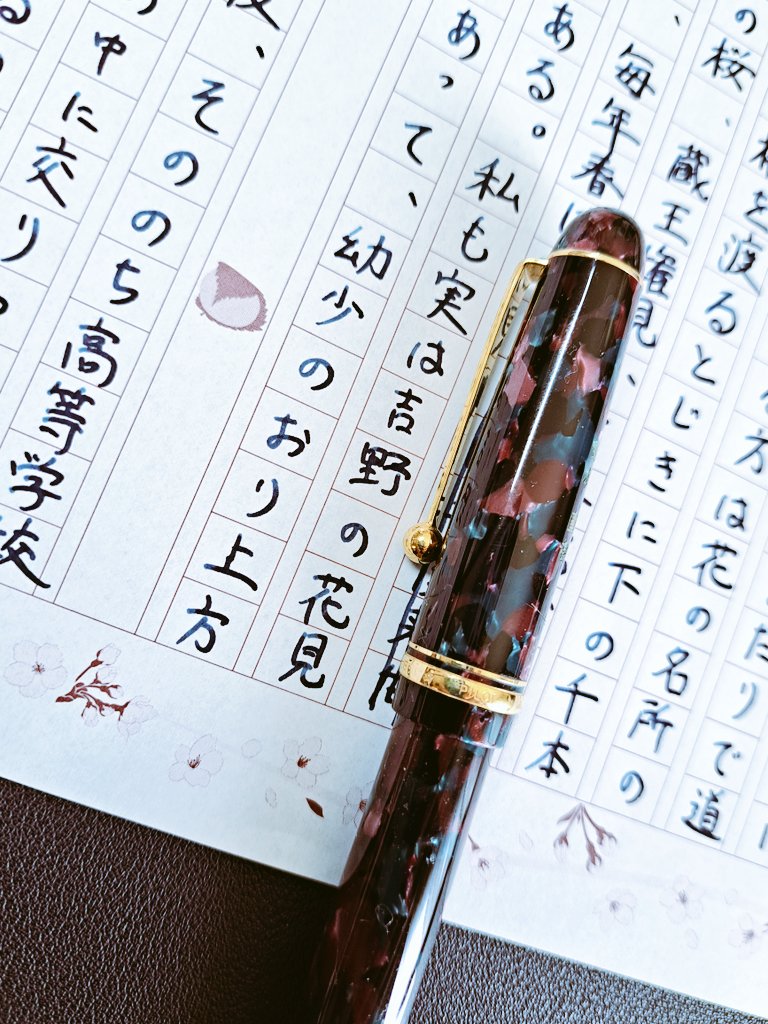 たりで道
方は花の名所の
橋を渡るとじきに下の千本
の桜、蔵王権現、
、毎年春
ある。私も実は吉野の花見
あって、幼少のおり上方
、そののち高等学校
中に交り
PILOT